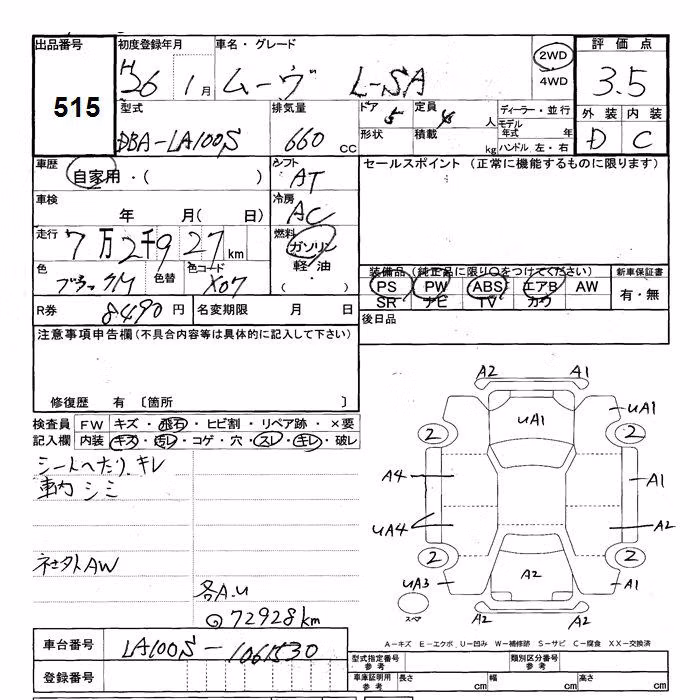 出品番号 初度登録年月 車名・グレード 評価点
515
H26 1月 ムーヴ L-SA 2WD 4WD 3.5
外装 内装
D C
型式 排気量 ドア 定員 ディーラー・並行
DBA-LA100S 660 cc 5 人
形状 積載 kg モデル年式 年 ハンドル 左・右
車歴 シフト セールスポイント (正常に機能するものに限ります)
自家用・( ) AT
車検 冷房
年 月(日) AC
走行 燃料
7万2千9 27 km ガソリン
軽油
・
( )
色 色替 色コード
ブラックM X07
装備品(純正品に限り○をつけてください) 新車保証書
PS PW ABS エアB AW 有・無
SR ナビ TV カワ
R券 8490円 名変期限 月 日 後日品
注意事項申告欄(不具合内容等は具体的に記入して下さい)
修復歴 有 〔箇所 〕
検査員 FW キズ・飛石・ヒビ割・リペア跡・×要
記入欄 内装 キズ・汚レ・コゲ・穴・スレ・キレ・破レ
シートへたり、キレ
車内 シミ
社外AW
各A.U
◎72928km
A2 A1
UA1 UA1
2 2
A4 A1
UA4 A2
2 2
UA3 A2 A1
スペア
A2 A2
A-キズ E-エクボ U-凹み W-補修跡 S-サビ C-腐食 XX-交換済
車台番号 LA100S-1061530
登録番号
型式指定番号 参考 類別区分番号 参考
車庫証明用 参考 長さ cm 幅 cm 高さ cm